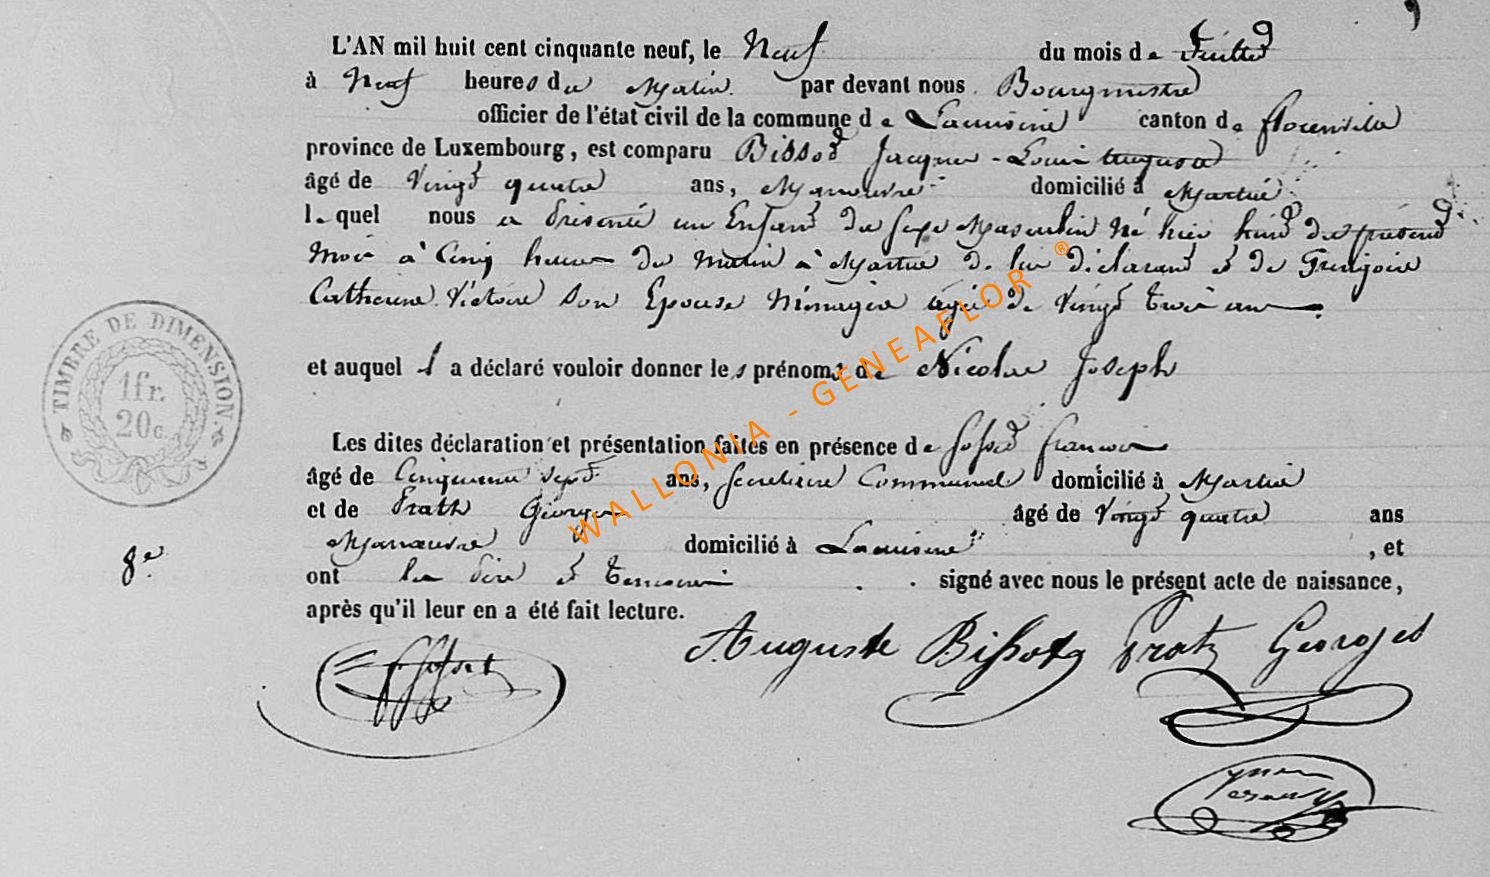 L'AN mil huit cent cinquante neuf, le Neuf du mois de Juillet
à Neuf heures du Matin par devant nous Bourgmestre
officier de l'état civil de la commune de Lacuisine canton de florenville
province de Luxembourg, est comparu Bissot Jacques-Louis Auguste
âgé de Vingt quatre ans, Manœuvre domicilié à Martué
lequel nous a présenté un Enfant du sexe Masculin Né hier huit du présent
Mois à Cinq heures du Matin à Martué de lui déclarant et de
Catherine Victoire son Epouse Ménagère âgée de Vingt trois ans
et auquel il a déclaré vouloir donner les prénoms de Nicolas Joseph
Les dites déclaration et présentation faites en présence de François
âgé de Cinquante sept ans, Secrétaire Communal domicilié à Martué
et de Pratz Georges âgé de Vingt quatre ans
Manœuvre domicilié à Lacuisine, et
ont les père et témoins signé avec nous le présent acte de naissance,
après qu'il leur en a été fait lecture.
Auguste Bissot Pratz Georges
8e
TIMBRE DE DIMENSION
1fr.
20c.
WALLONIA - GENEAFLOR ®